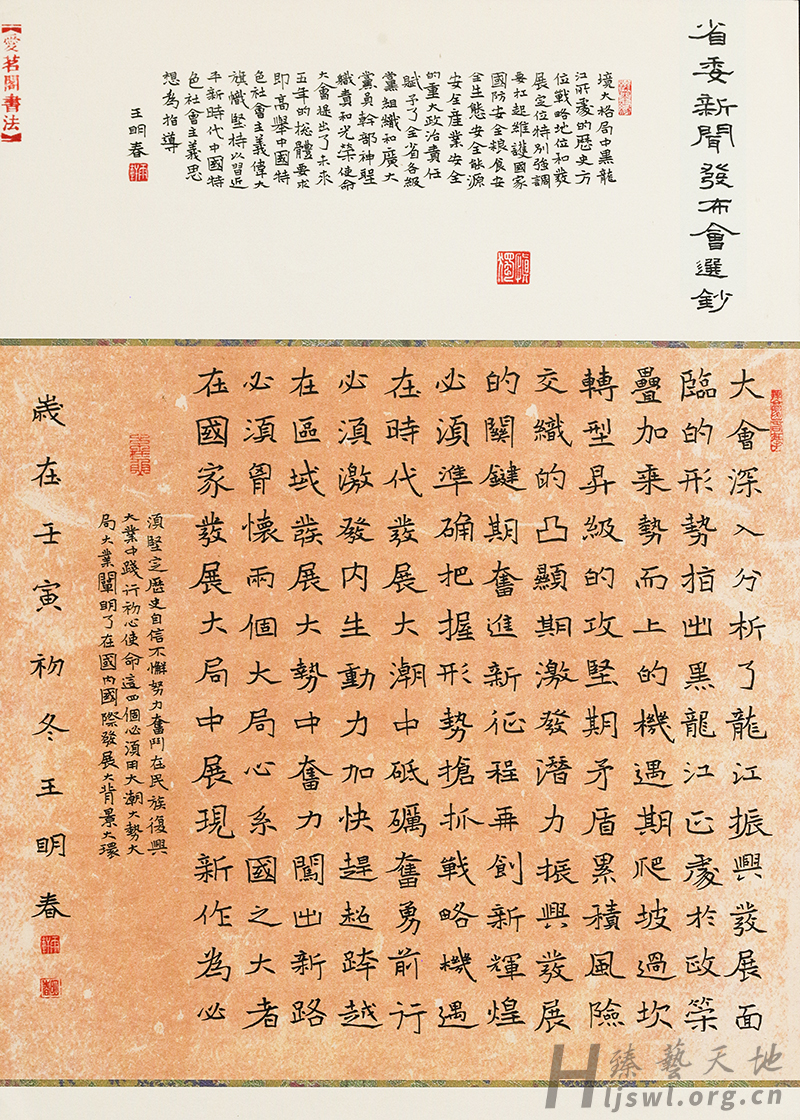 省委新聞發布會選鈔
大會深入分析了龍江振興發展面
臨的形勢指出黑龍江正處於政策
疊加乘勢而上的機遇期爬坡過坎
轉型昇級的攻堅期矛盾累積風險
交織的凸顯期激發潛力振興發展
的關鍵期奮進新征程再創新輝煌
必須準确把握形勢搶抓戰略機遇
在時代發展大潮中砥礪奮勇前行
必須激發内生動力加快趕超跨越
在區域發展大勢中奮力闖出新路
必須胷懷兩個大局心系國之大者
在國家發展大局中展現新作為必
須堅定歷史自信不懈努力奮鬥在民族復興
大業中踐行初心使命這四個必須用大潮大勢大
局大業闡明了在國内國際發展大背景大環
歲在壬寅初冬王明春
境大格局中黑龍
江所處的歷史方
位戰略地位和發
展定位特別強調
要扛起維護國家
國防安全糧食安
全生態安全能源
安全産業安全
的重大政治責任
賦予了全省各級
黨組織和廣大
黨員幹部神聖
職責和光榮使命
大會提出了未來
五年的總體要求
即高舉中國特
色社會主義偉大
旗幟堅持以習近
平新時代中國特
色社會主義思
想為指導
王明春
【愛茗閣書法】
臻藝天地
Hljswl.org.cn